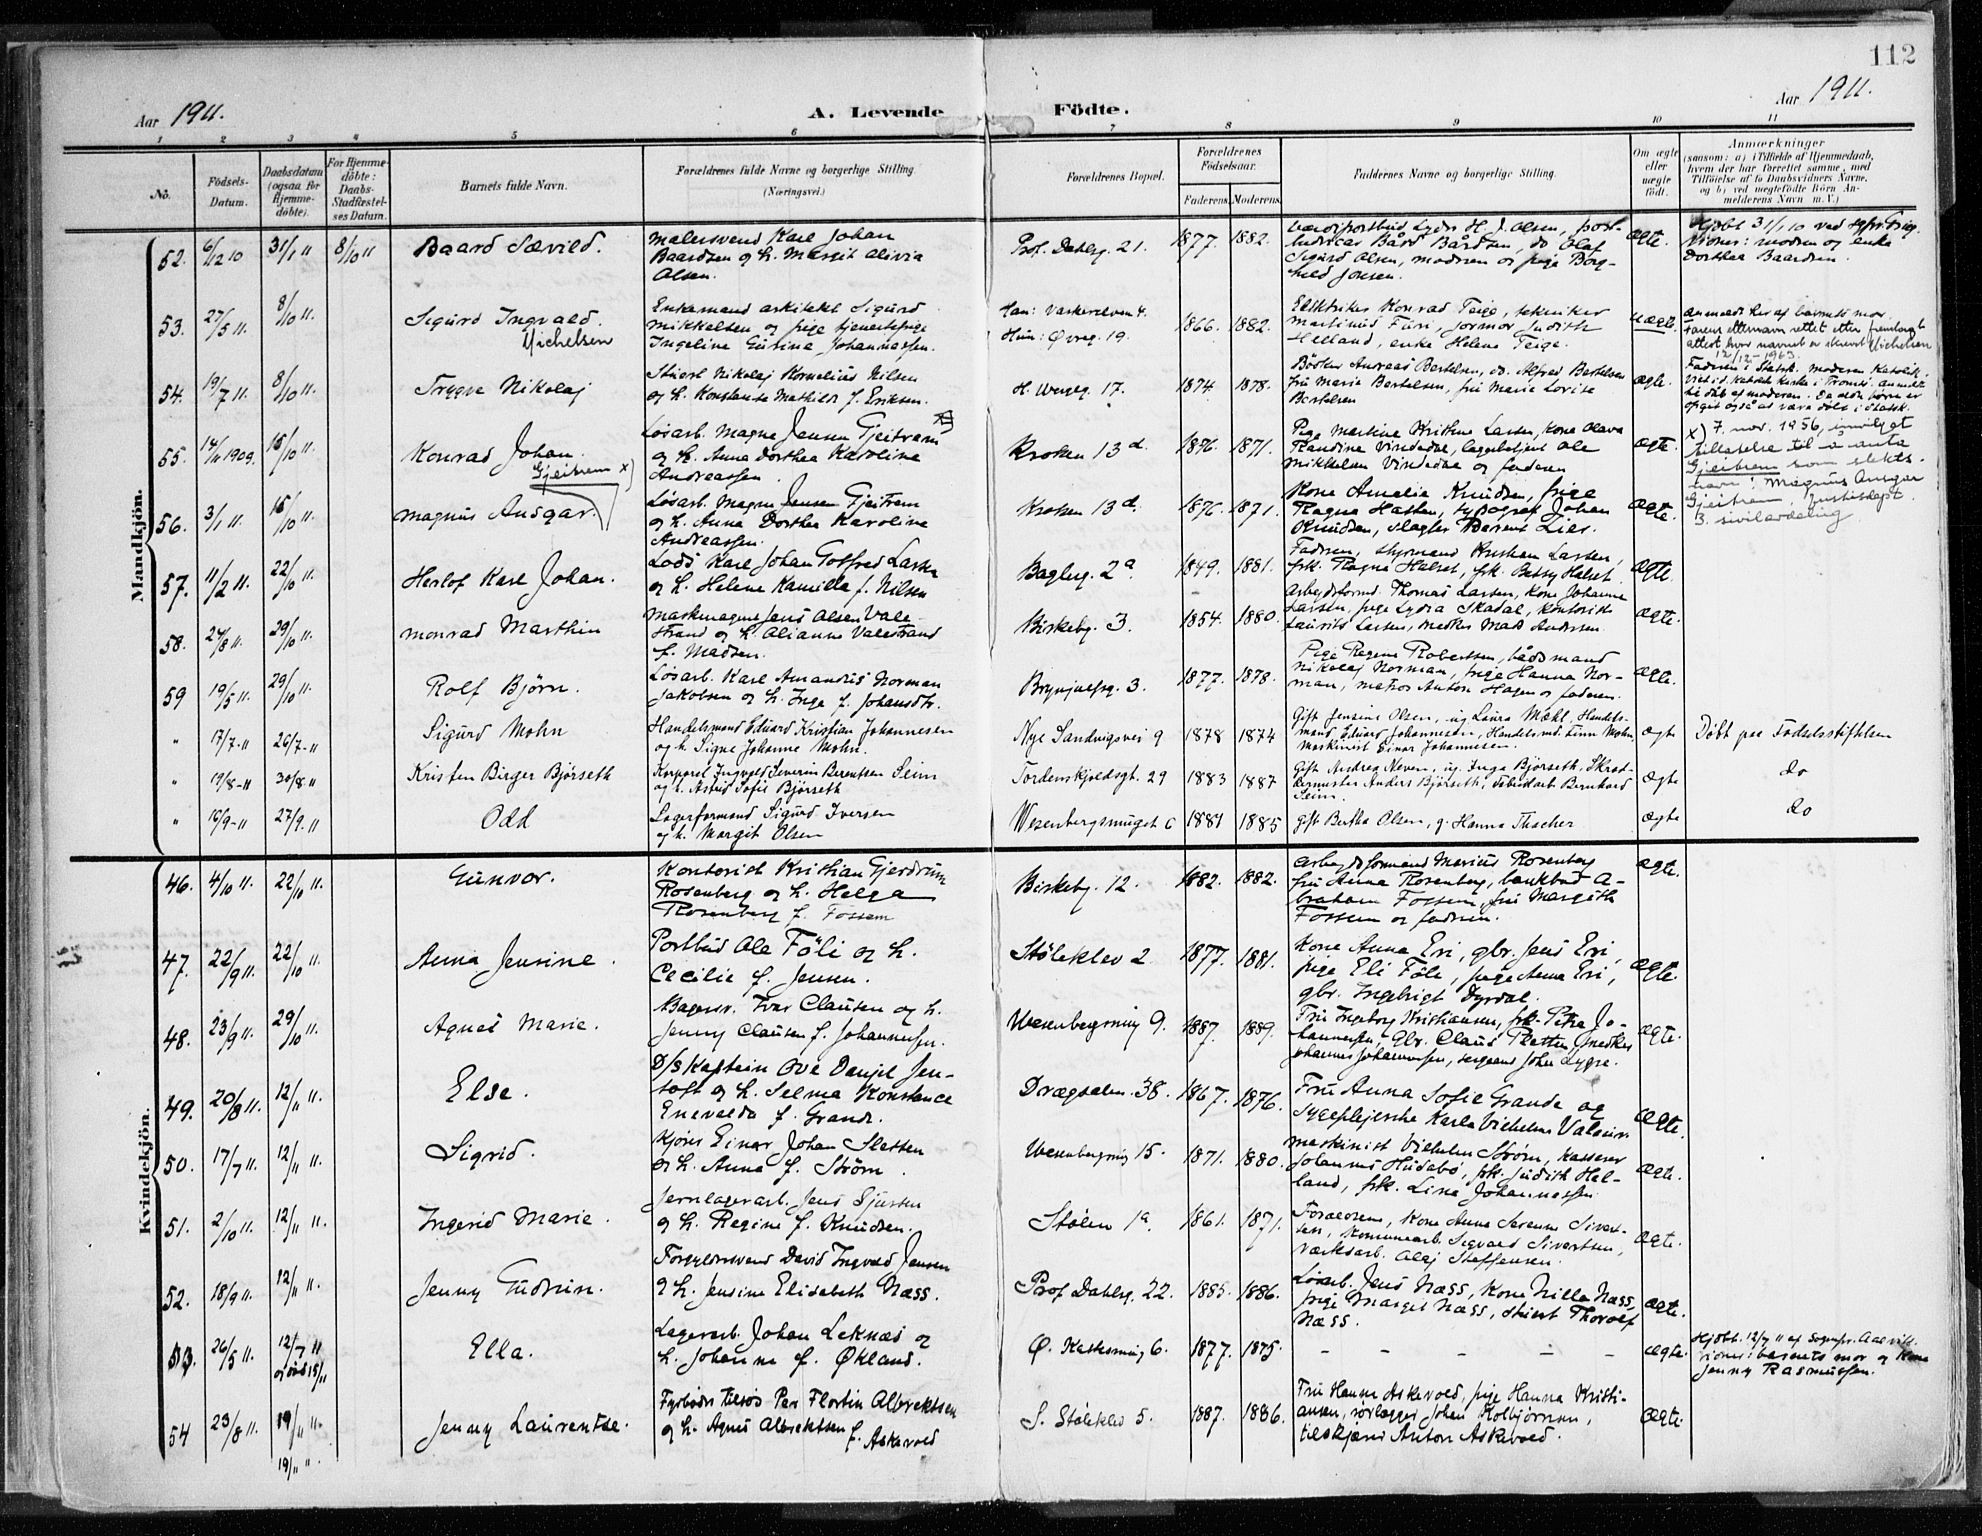 112
Aar 1911.
A. Levende Födte.
Aar 1911.
1 2 3 4 5 6 7 8 9 10 11
No.
Födsels-Datum.
Daabsdatum (ogsaa for Hjemme-döbte).
For Hjemme-döbte: Daabs-Stadfæstel-ses Datum.
Barnets fulde Navn.
Forældrenes fulde Navne og borgerlige Stilling. (Næringsvei.)
Forældrenes Bopæl.
Forældrenes Födselsaar.
Faderens. Moderens.
Faddernes Navne og borgerlige Stilling.
Om ægte eller uægte födt.
Anmærkninger
(saasom: a) i Tilfælde af Hjemmedaab,
hvem der har forrettet samme, med
Tilföielse af to Daabsvidners Navne,
og b) ved uægtefödte Börn An-
melderens Navn m. V.)
Mandkjön.
52. 6/12 10 31/1 " 8/10 " Baard Sævild.
Malersvend Karl Johan
Baardsen og h. Margit Alivia
Olsen.
Prof. Dahlsg. 21. 1877. 1882.
Sigurd Olsen, moderen og pige Borg-
hild Jonsen.
ægte.
Hjdbt 31/1 10 ved
moderen og enke
Dorthea Baardsen.
53. 27/5 11. 8/10 11. Sigurd Ingvald.
Michelsen
Enkemand arkitekt Sigurd
Mikkelsen og pige tjenestepige
Ingeline Gurine Johannessen.
Han: Vaskerelven 4.
Hun: Øvreg. 19.
1866. 1882.
Elektriker Konrad Teige, tekniker
Martinus Furi, jormor Judith
Helland, enke Helene Teige.
uægte.
Anmeldt her af barnets mor.
Farens etternavn rettet etter fremlagt
attest hvor navnet er skrevet Michelsen
12/12-1963.
54. 19/7 11. 8/10 11. Trygve Nikolaj
Stuert Nikolaj Kornelius Nilsen
og h. Konstanse Mathilde f. Eriksen.
H. Weng. 17. 1874. 1878.
Bødker Andreas Bertelsen, do. Alfred Bertelsen
fru Marie Bertelsen, fru Marie Lovise
Bertelsen
ægte.
Faderen i Statsk. moderen Katolik.
Viet i d. Katolske kirke i Tromsø. Anmeldt
til dåb af moderen. De andre børn er
opgit også at være døbt i Statsk.
55. 14/11 1909. 15/10 11. Konrad Johan.
Gjeitrem x)
Løsarb. Magne Jensen Gjeitrem
og h. Anna Dorthea Karoline
Andreassen.
Kroken 13 d. 1876. 1871.
Pige Martine Kristine Larsen, kone Olava
Randine Vindedal, lagerbetjent Ole
Mikkelsen Vindedal og faderen
ægte.
x) 7. nov. 1956, innvilget
tillatelse til å anta
Gjeitrem som slekts-
navn: Magnus Ansgar
Gjeitrem. Justisdept.
3. sivilavdeling
56. 3/1 11. 15/10 11. Magnus Ansgar.
Løsarb. Magne Jensen Gjeitrem
og h. Anna Dorthea Karoline
Andreassen.
Kroken 13 d. 1876. 1871.
Kone Amelie Knudsen, frige
Ragna Hatten, typograf Johan
Knudsen, slagter Berent Lies.
ægte.
57. 11/2 11. 22/10 11. Herlof Karl Johan.
Lods Karl Johan Gotfred Larsen
og h. Helene Kamilla f. Nilsen
Bagleg. 2a. 1849. 1881.
Faderen, styrmand Kristian Larsen,
frk. Ragna Halset, frk. Betsy Halset.
ægte.
58. 24/8 11. 29/10 11. Monrad Marthin
Maskinagent Jens Olsen Vale
strand og h. Alianna Valestrand
f. Madsen.
Birkebg. 3. 1854. 1880.
Arbeydsformd. Thomas Larsen, kone Johanne
Larsen, pige Lydia Skadal, kontorist
Laurits Larsen, medhj. Mads Andersen.
ægte.
59 19/5 11. 29/10 11. Rolf Bjørn.
Løsarb. Karl Amandus Norman
Jakobsen og h. Inga f. Johansdtr.
Brynjulfsg. 3. 1877. 1878.
Pige Regine Robertsen, bådsmand
Nikolaj Norman, pige Hanna Nor-
man, matros Anton Hagen og faderen.
ægte.
" 17/7-11 26/7-11 Sigurd Mohn
Handelsmand Eduard Kristian Johannesen
og h. Signe Johanne Mohn.
Nye Sandvigsvei 9 1878 1874
Gift Jensine Olsen, ug. Laura Mækl, Handels-
mand Eduard Johannesen, Handelsmd. Finn Mohn,
Maskinist Einar Johannesen.
ægte
Døbt paa Fødselsstiftelsen
" 19/8-11 30/8 11 Kristen Birger Bjørseth
Korporal Ingvald Severin Berentsen Seim
og h. Astrid Sofie Bjørseth
Tordenskjoldsgt. 29 1883 1887
Gift Andrea Neven, ug. Inga Bjørseth, Skræd-
dermester Anders Bjørseth, Fabrikarb Bernhard
Seim.
ægte
do
" 16/9-11 27/9. 11 Odd
Lagerformand Sigurd Iversen
og h. Margit Olsen
Wesenbergsmuget 6 1881 1885
gift Bertha Olsen, g. Hanna Thacher
ægte
do
Kvindekjön.
46. 4/10 11. 22/10 11. Gunvor.
Kontorist Kristian Gjerdrum
Rosenberg og h. Helga
Rosenberg f. Fossem
Birkebg. 12. 1882. 1882.
Arbeydsformand Marius Rosenberg
fru Anna Rosenberg, bankbud A-
braham Fossem, fru Margith
Fossem og faderen.
ægte.
47. 22/9 11. 22/10 11. Anna Jensine.
Postbud Ole Föli og h.
Cecilie f. Jensen.
Stöleklev 2. 1877. 1881.
Kone Anna Eri, gbr. Jens Eri,
pige Eli Föli, pige Anna Eri,
gbr. Ingebrigt Dyrdal.
ægte.
48. 23/9 11. 29/10 11. Agnes Marie.
Bagersv. Ivar Clausen og h.
Jenny Clausen f. Johannessen.
Wesenbergsmug 9. 1887. 1889.
Fru Ingeborg Kristiansen, frk. Petra Jo-
hannessen, Gbr. Claus Sletten, snedker
Johannes Johannessen, sergeant John Lygre.
ægte.
49. 20/8 11. 12/11 11. Else.
D/S Kaptein Ove Daniel Jen-
toft og h. Selma Konstance
Enevalda f. Grande.
Drægsalm. 38. 1867. 1876.
Fru Anna Sofie Grande og
sygeplejerske Karla Vilhelmine
ægte.
50. 17/7 11. 12/11 11. Sigrid.
Kjører Einar Johan Sletten
og h. Anna f. Strøm
Wesenbergsmug 15. 1871. 1880.
Maskinist Vilhelm Strøm, kasserer
Johannes Husebö, frk. Judith Hel-
land, frk. Lina Johannessen.
ægte.
51. 2/10 11. 12/11 11. Ingerid Marie.
Jernlagerarb. Jens Sjursen
og h. Regine f. Knudsen.
Stölen 1a. 1861. 1871.
Forældrene, kone Anna Severine Sivert-
sen, kommunearb. Sigvald Sivertsen,
Værksarb. Olaj Steffensen.
ægte.
52. 18/9 11. 12/11 11. Jenny Gudrun.
Forgyldersvend David Ingvald Jensen
og h. Jensine Elisabeth Næss.
Prof. Dahlsg. 22. 1885. 1886.
Løsarb. Jens Næss, kone Nille Næss,
pige Margit Næss, stuert Thorolf
Næss.
ægte.
53. 26/5 11. 12/7 11 Ella.
Lagerarb. Johan Leknæs og
h. Johanne f. Økland.
Ø. Kalkesmug 6. 1877. 1875.
– – – – –
ægte.
Hjdbt. 12/7 11 af sognepr. Aalvik.
barnets mor og kone
Jenny Rasmussen.
54 23/8 11. 19/11 11. Jenny Laurentse.
Fyrbøder tilsøs Per Flortin Albrektsen
og h. Agnes Albrektsen f. Askevold
S. Stöleklev 5. 1887. 1886.
Fru Hanne Askevold, pige Hanna Kristi-
ansen, rørlægger Johan Kolbjørnsen,
tilskjærer Anton Askevold.
ægte.
19/11 "